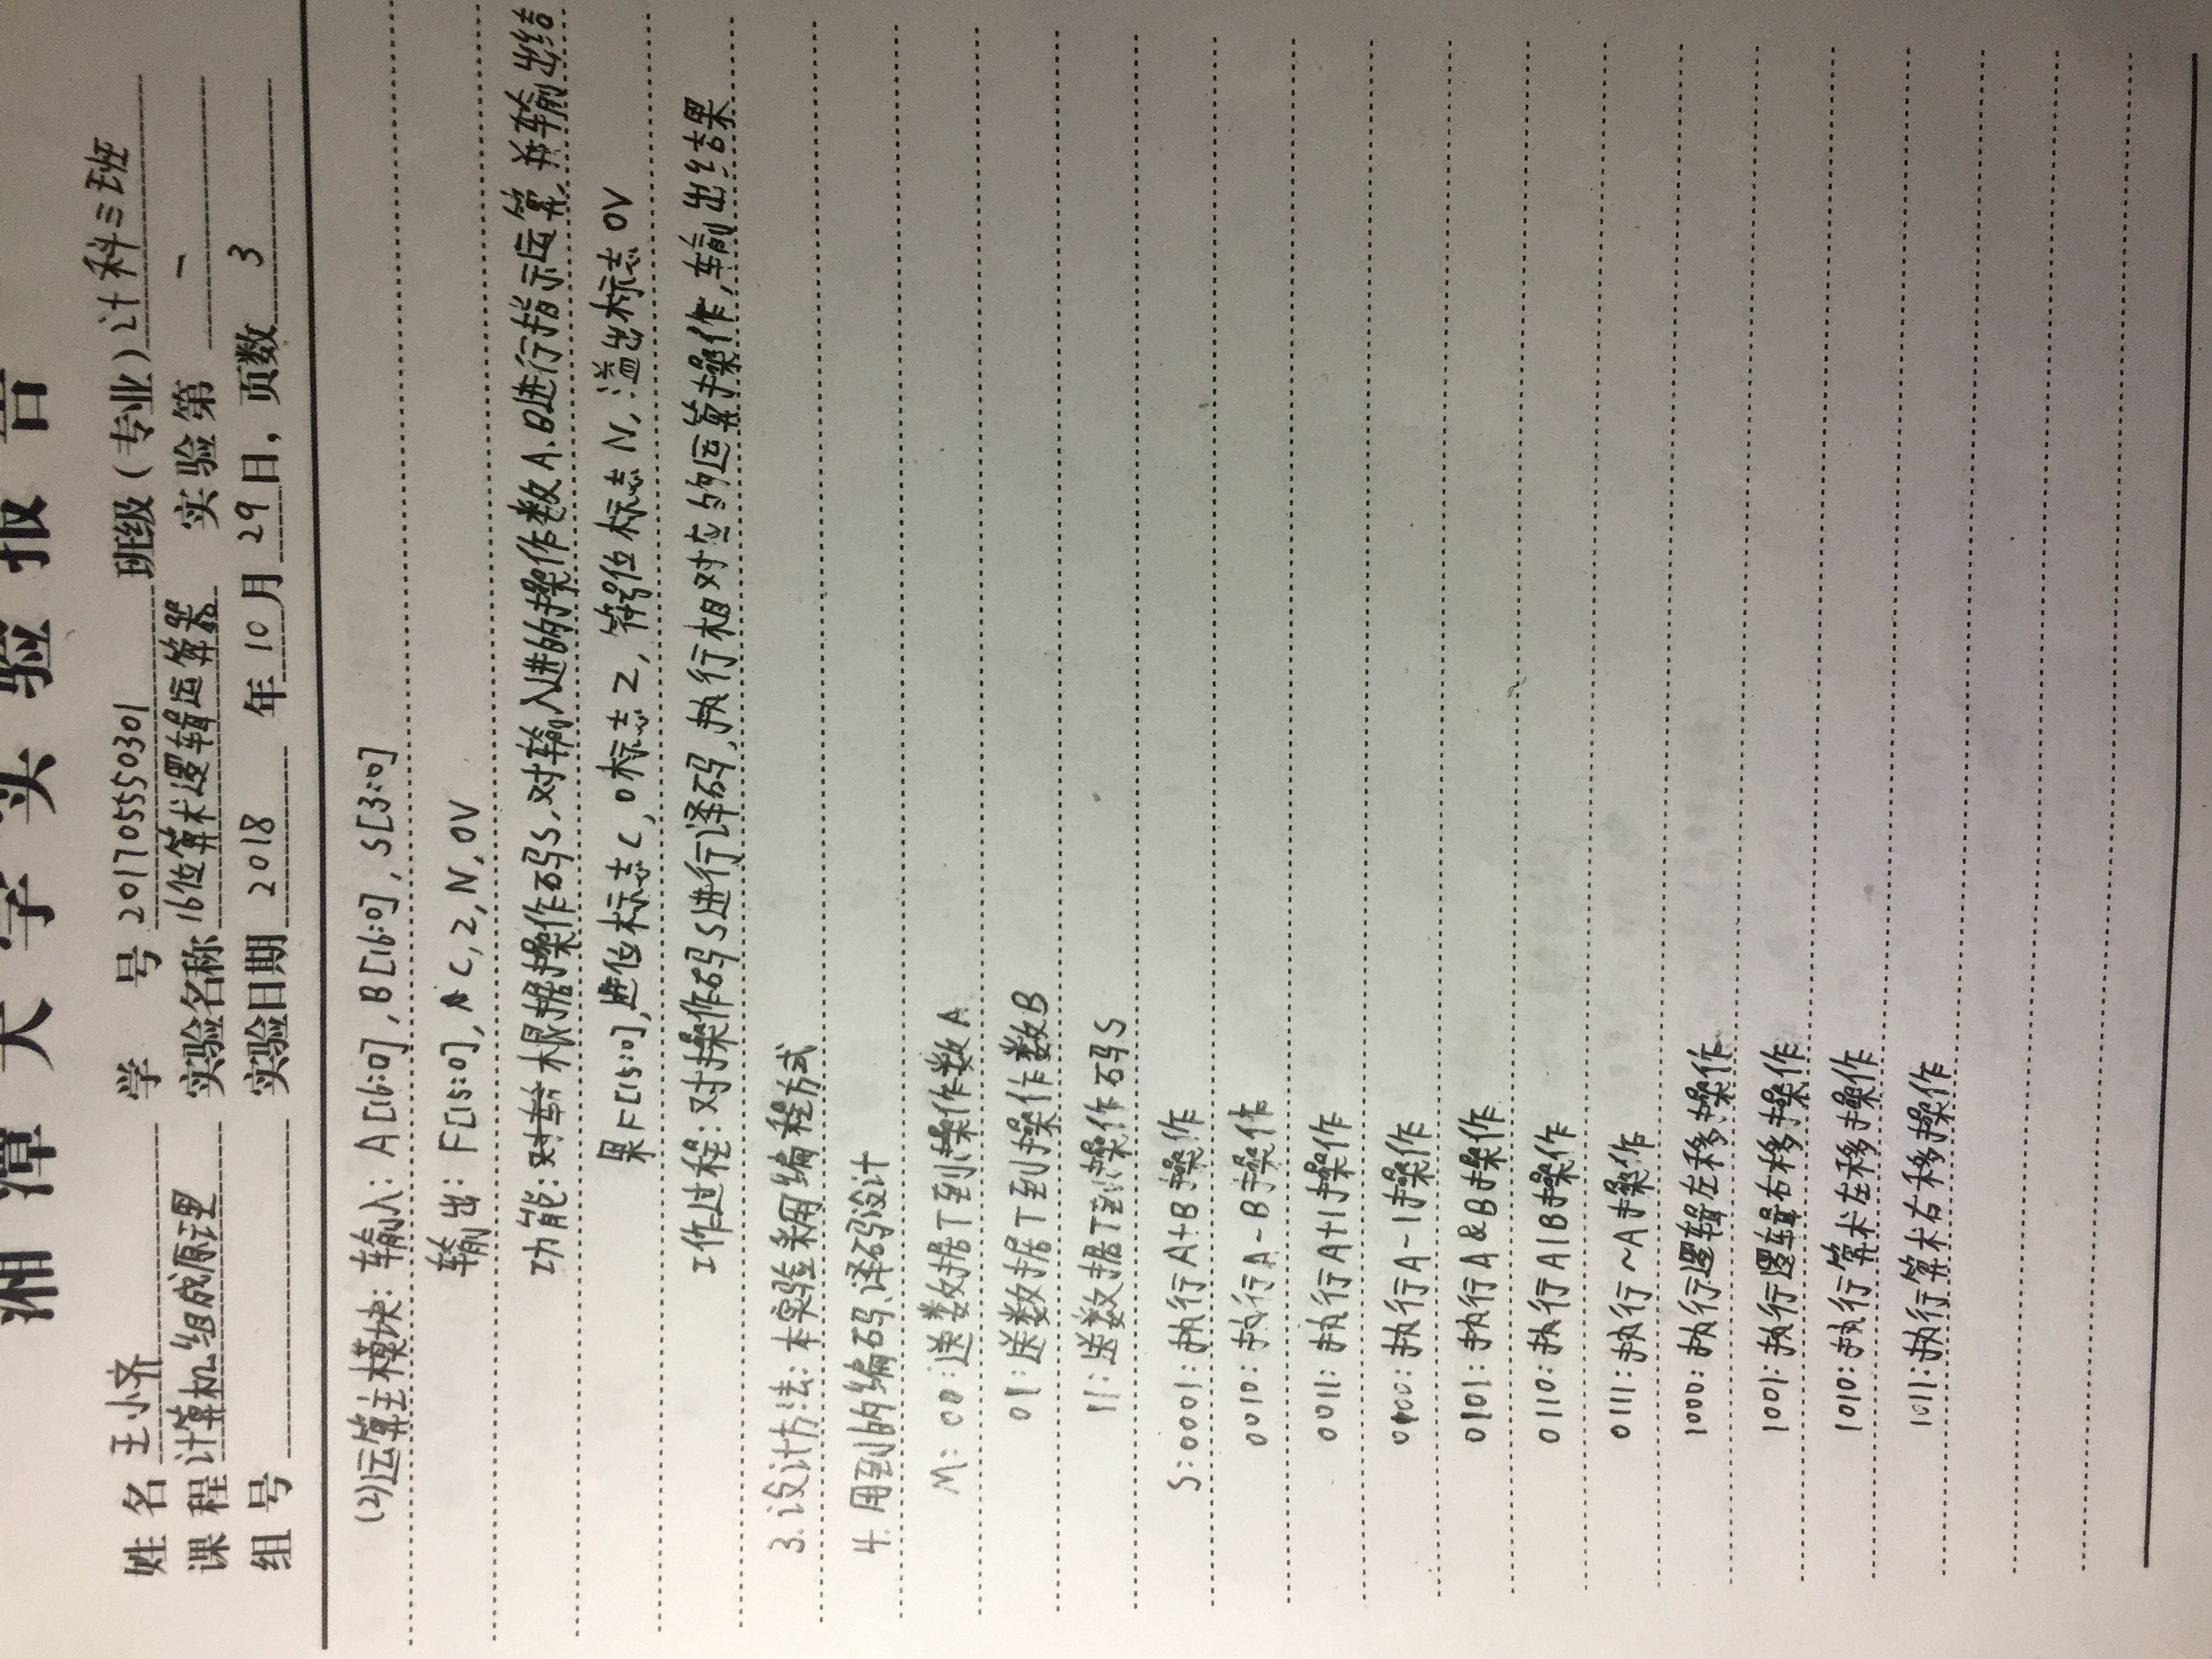 湘潭大学实验报告
姓名 王小齐 学号 201705550301 班级（专业） 计科三班
课程 计算机组成原理 实验名称 16位算术逻辑运算器 实验第 一
组号 实验日期 2018 年 10 月 29 日，页数 3
(2)运算主模块: 输入: A[16:0], B[16:0], S[3:0]
输出: F[15:0], C, Z, N, OV
功能: 根据操作码S, 对输入进的操作数A、B进行指示运算, 并输出结
果F[15:0], 进位标志C, 0标志Z, 符号位标志N, 溢出标志OV
工作过程: 对操作码S进行译码, 执行相对应的运算操作, 输出结果
3. 设计方法: 本实验采用编程方式
4. 用到的编码、译码设计
M: 00: 送数据T到操作数A
01: 送数据T到操作数B
11: 送数据T到操作码S
S: 0001: 执行A+B操作
0010: 执行A-B操作
0011: 执行A+1操作
0100: 执行A-1操作
0101: 执行A&B操作
0110: 执行A|B操作
0111: 执行~A操作
1000: 执行逻辑左移操作
1001: 执行逻辑右移操作
1010: 执行算术左移操作
1011: 执行算术右移操作